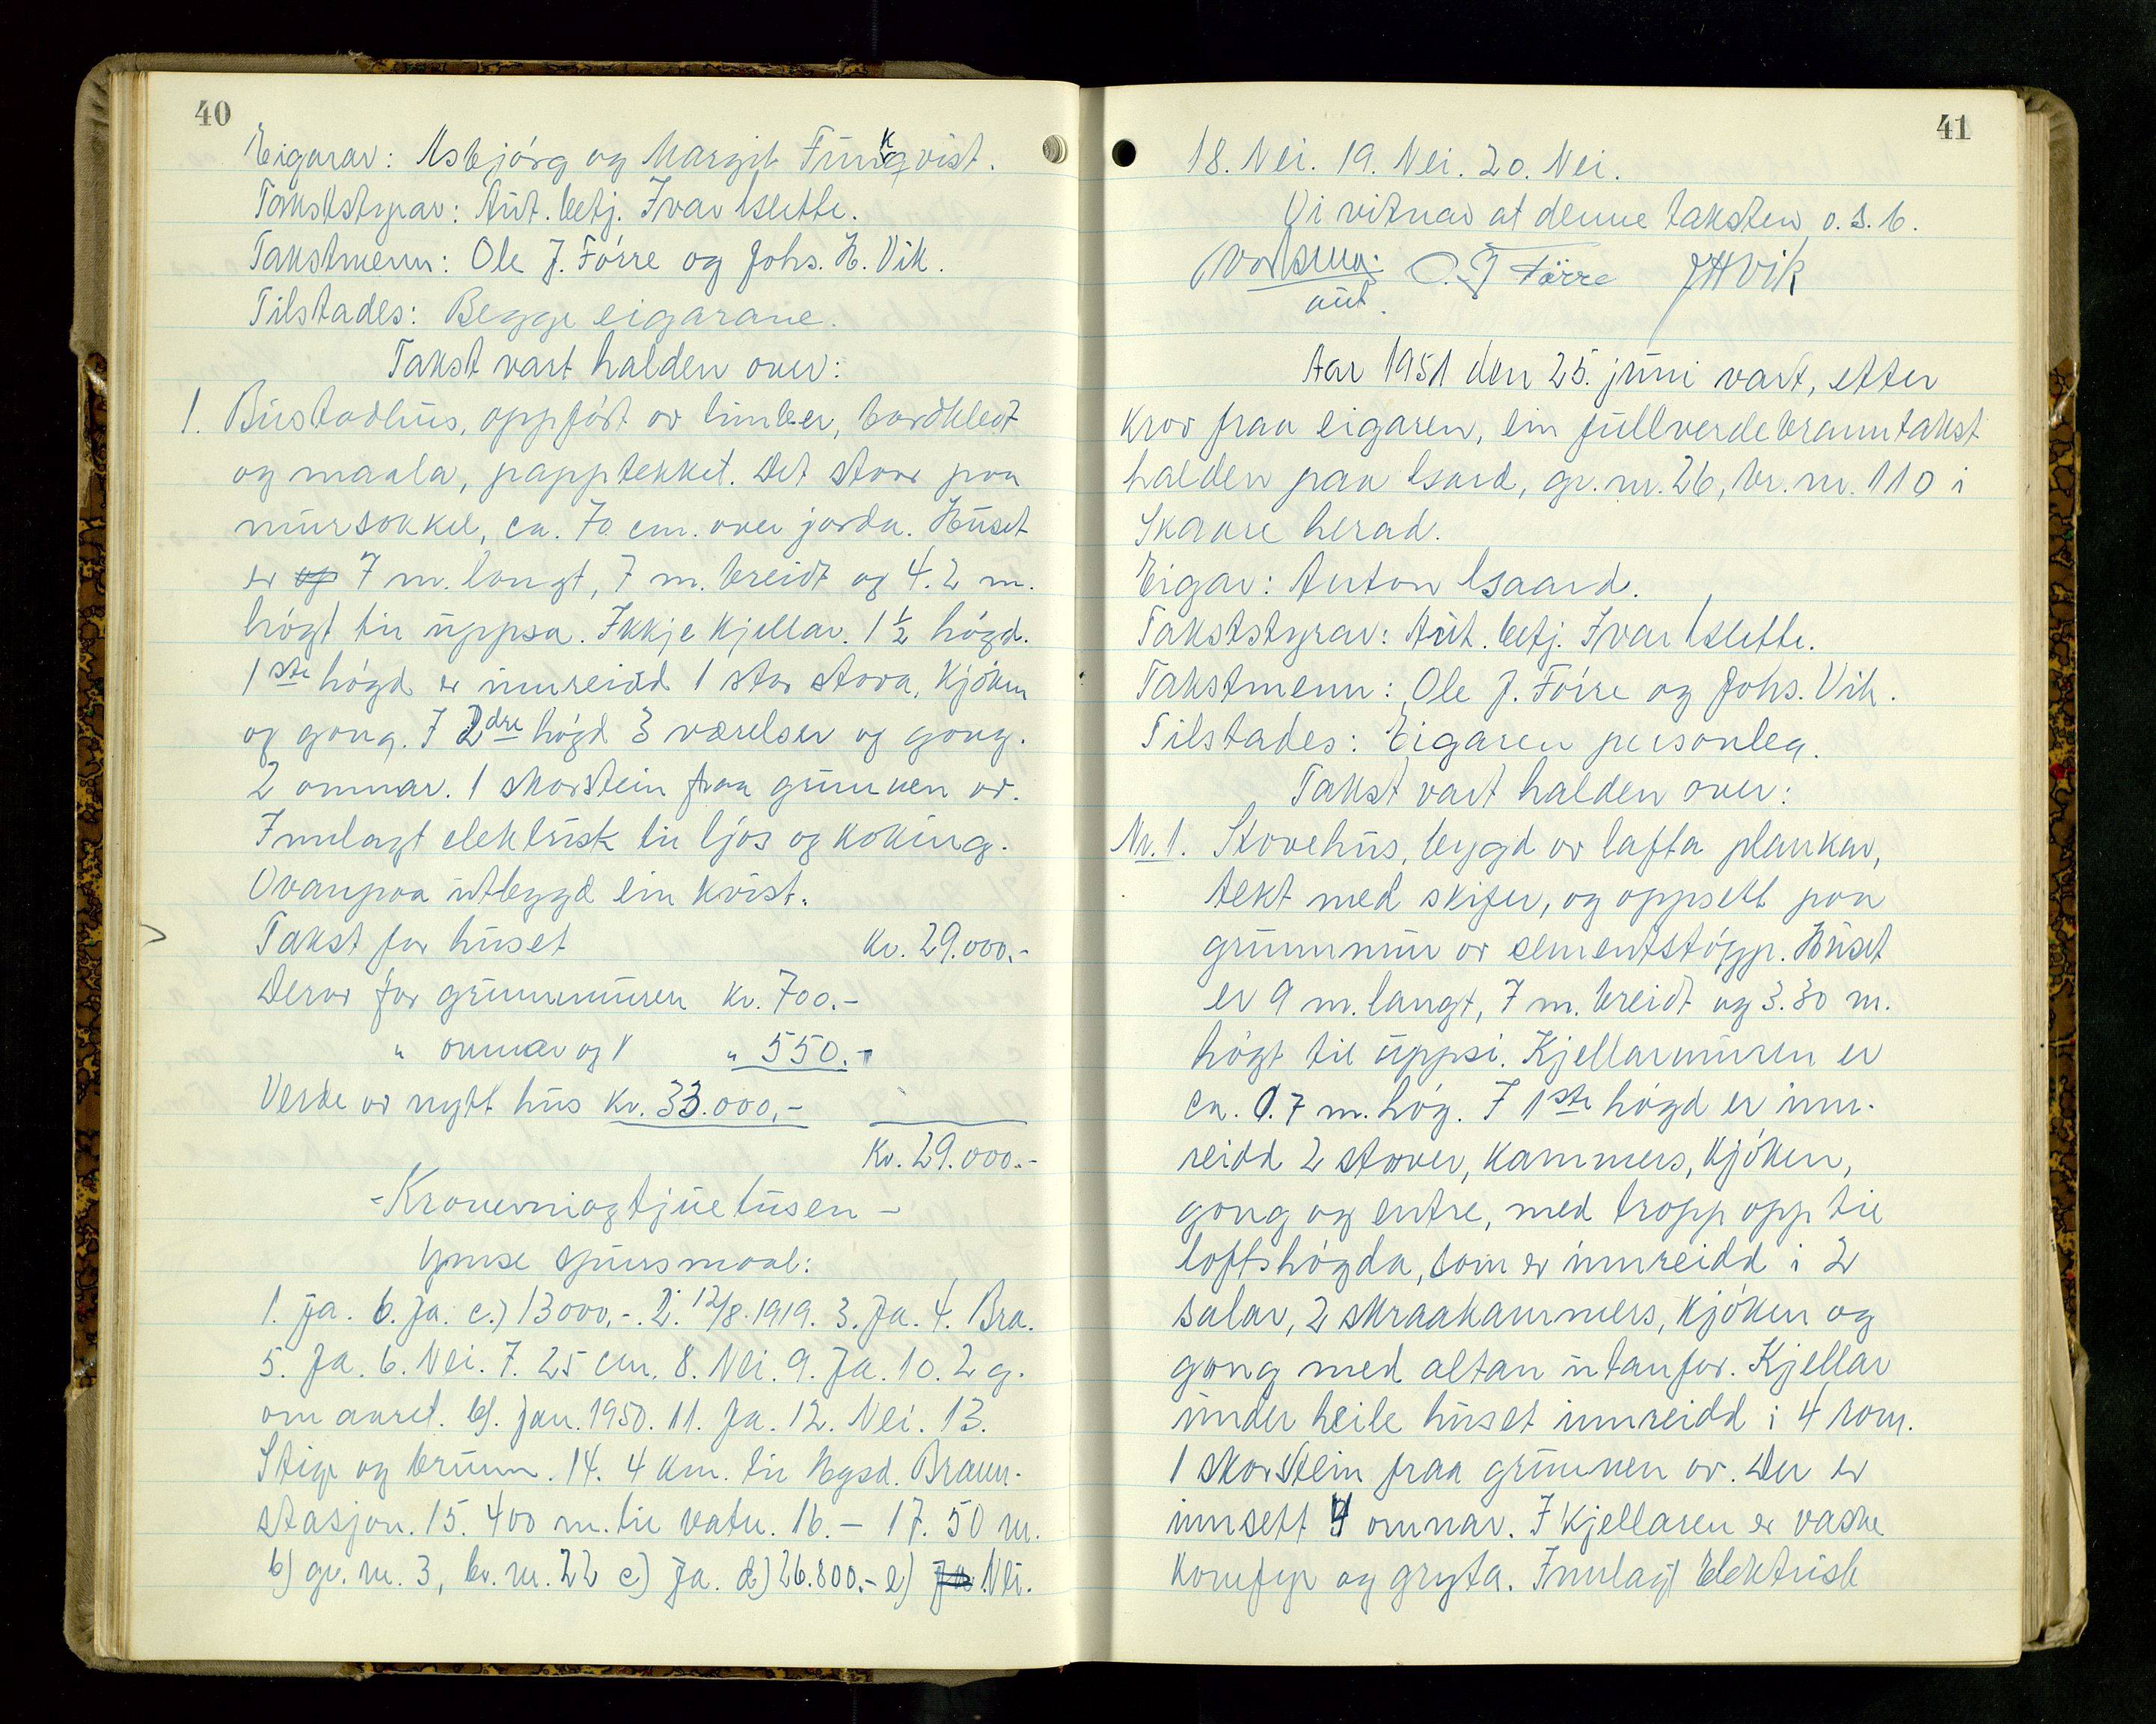 40
Eigarar: Asbjörg og Margit Funkqvist.
Takststyrar: Aut. betj. Ivar
Takstmenn: Ole J. Förre og Johs. H. Vik.
Tilstades: Begge eigarane.
Takst vart halden over:
1. Bustadhus, oppfört av timber, bordkledt
og maala, papptekket. Det staar paa
mursokkel, ca. 70 cm. over jorda. Huset
er og 7 m. langt, 7 m. breidt og 4.2 m.
högt til uppsa. Ikkje kjellar. 1 1/2 högd.
1ste högd er innreidd 1 stor stova, kjöken
og gong. I 2dre högd 3 værelser og gong.
2 omnar. 1 skorstein fraa grunnen av.
Innlagt elektrisk til ljos og koking.
Ovanpaa utbygd ein kvist.
Takst for huset kr. 29.000.-
Derav for grunnmuren kr. 700.-
" omnar og " 550.-
Verde av nytt hus kr. 33.000,-
Kr. 29.000.-
- Kronerniogtjuetusen -
Ymse spursmaal:
1. ja. b. ja. c.) 13000,-. 2. 12/8.1919. 3. Ja. 4. Bra.
5. Ja. 6. Nei. 7. 25 cm. 8. Nei. 9. Ja. 10. 2 g.
om aaret. b). jan. 1950. 11. Ja. 12. Nei. 13.
Stige og brunn. 14. 4 km. til Hgsd. Brann-
stasjon. 15. 400 m. til vatn. 16. - 17. 50 m.
b) gr. nr. 3, br. nr. 22 c) Ja. d) 26.800.- e) Ja Nei.
41
18. Nei. 19. Nei. 20. Nei.
Vi vitnar at denne taksten, o.s.b.
O. J Förre JHVik
aut.
Aar 1951 den 25. juni vart, etter
krav fraa eigaren, ein fullverdebranntakst
halden paa, gr. nr. 26, br. nr. 110 i
Skaare herad.
Eigar: Anton
Takststyrar: Aut. betj. Ivar
Takstmenn: Ole J. Förre og Johs. Vik.
Tilstades: Eigaren personleg.
Takst vart halden over:
Nr. 1. Stovehus, bygd av lafta plankar,
tekt med skifer, og oppsett paa
grunnmur av sementstöpp. Huset
er 9 m. langt, 7 m. breidt og 3.30 m.
högt til uppsi. Kjellarmuren er
ca. 0.7 m. hög. I 1ste högd er inn-
reidd 2 stover, kammers, kjöken,
gong og entre, med tropp opp til
loftshögda, som er innreidd i 2
salar, 2 skraakammers, kjöken og
gong med altan utanfor. Kjellar
under heile huset innreidd i 4 rom.
1 skorstein fraa grunnen av. Der er
innsett 4 omnar. I kjellaren er vaske
komfyr og gryta. Innlagt Elektrisk